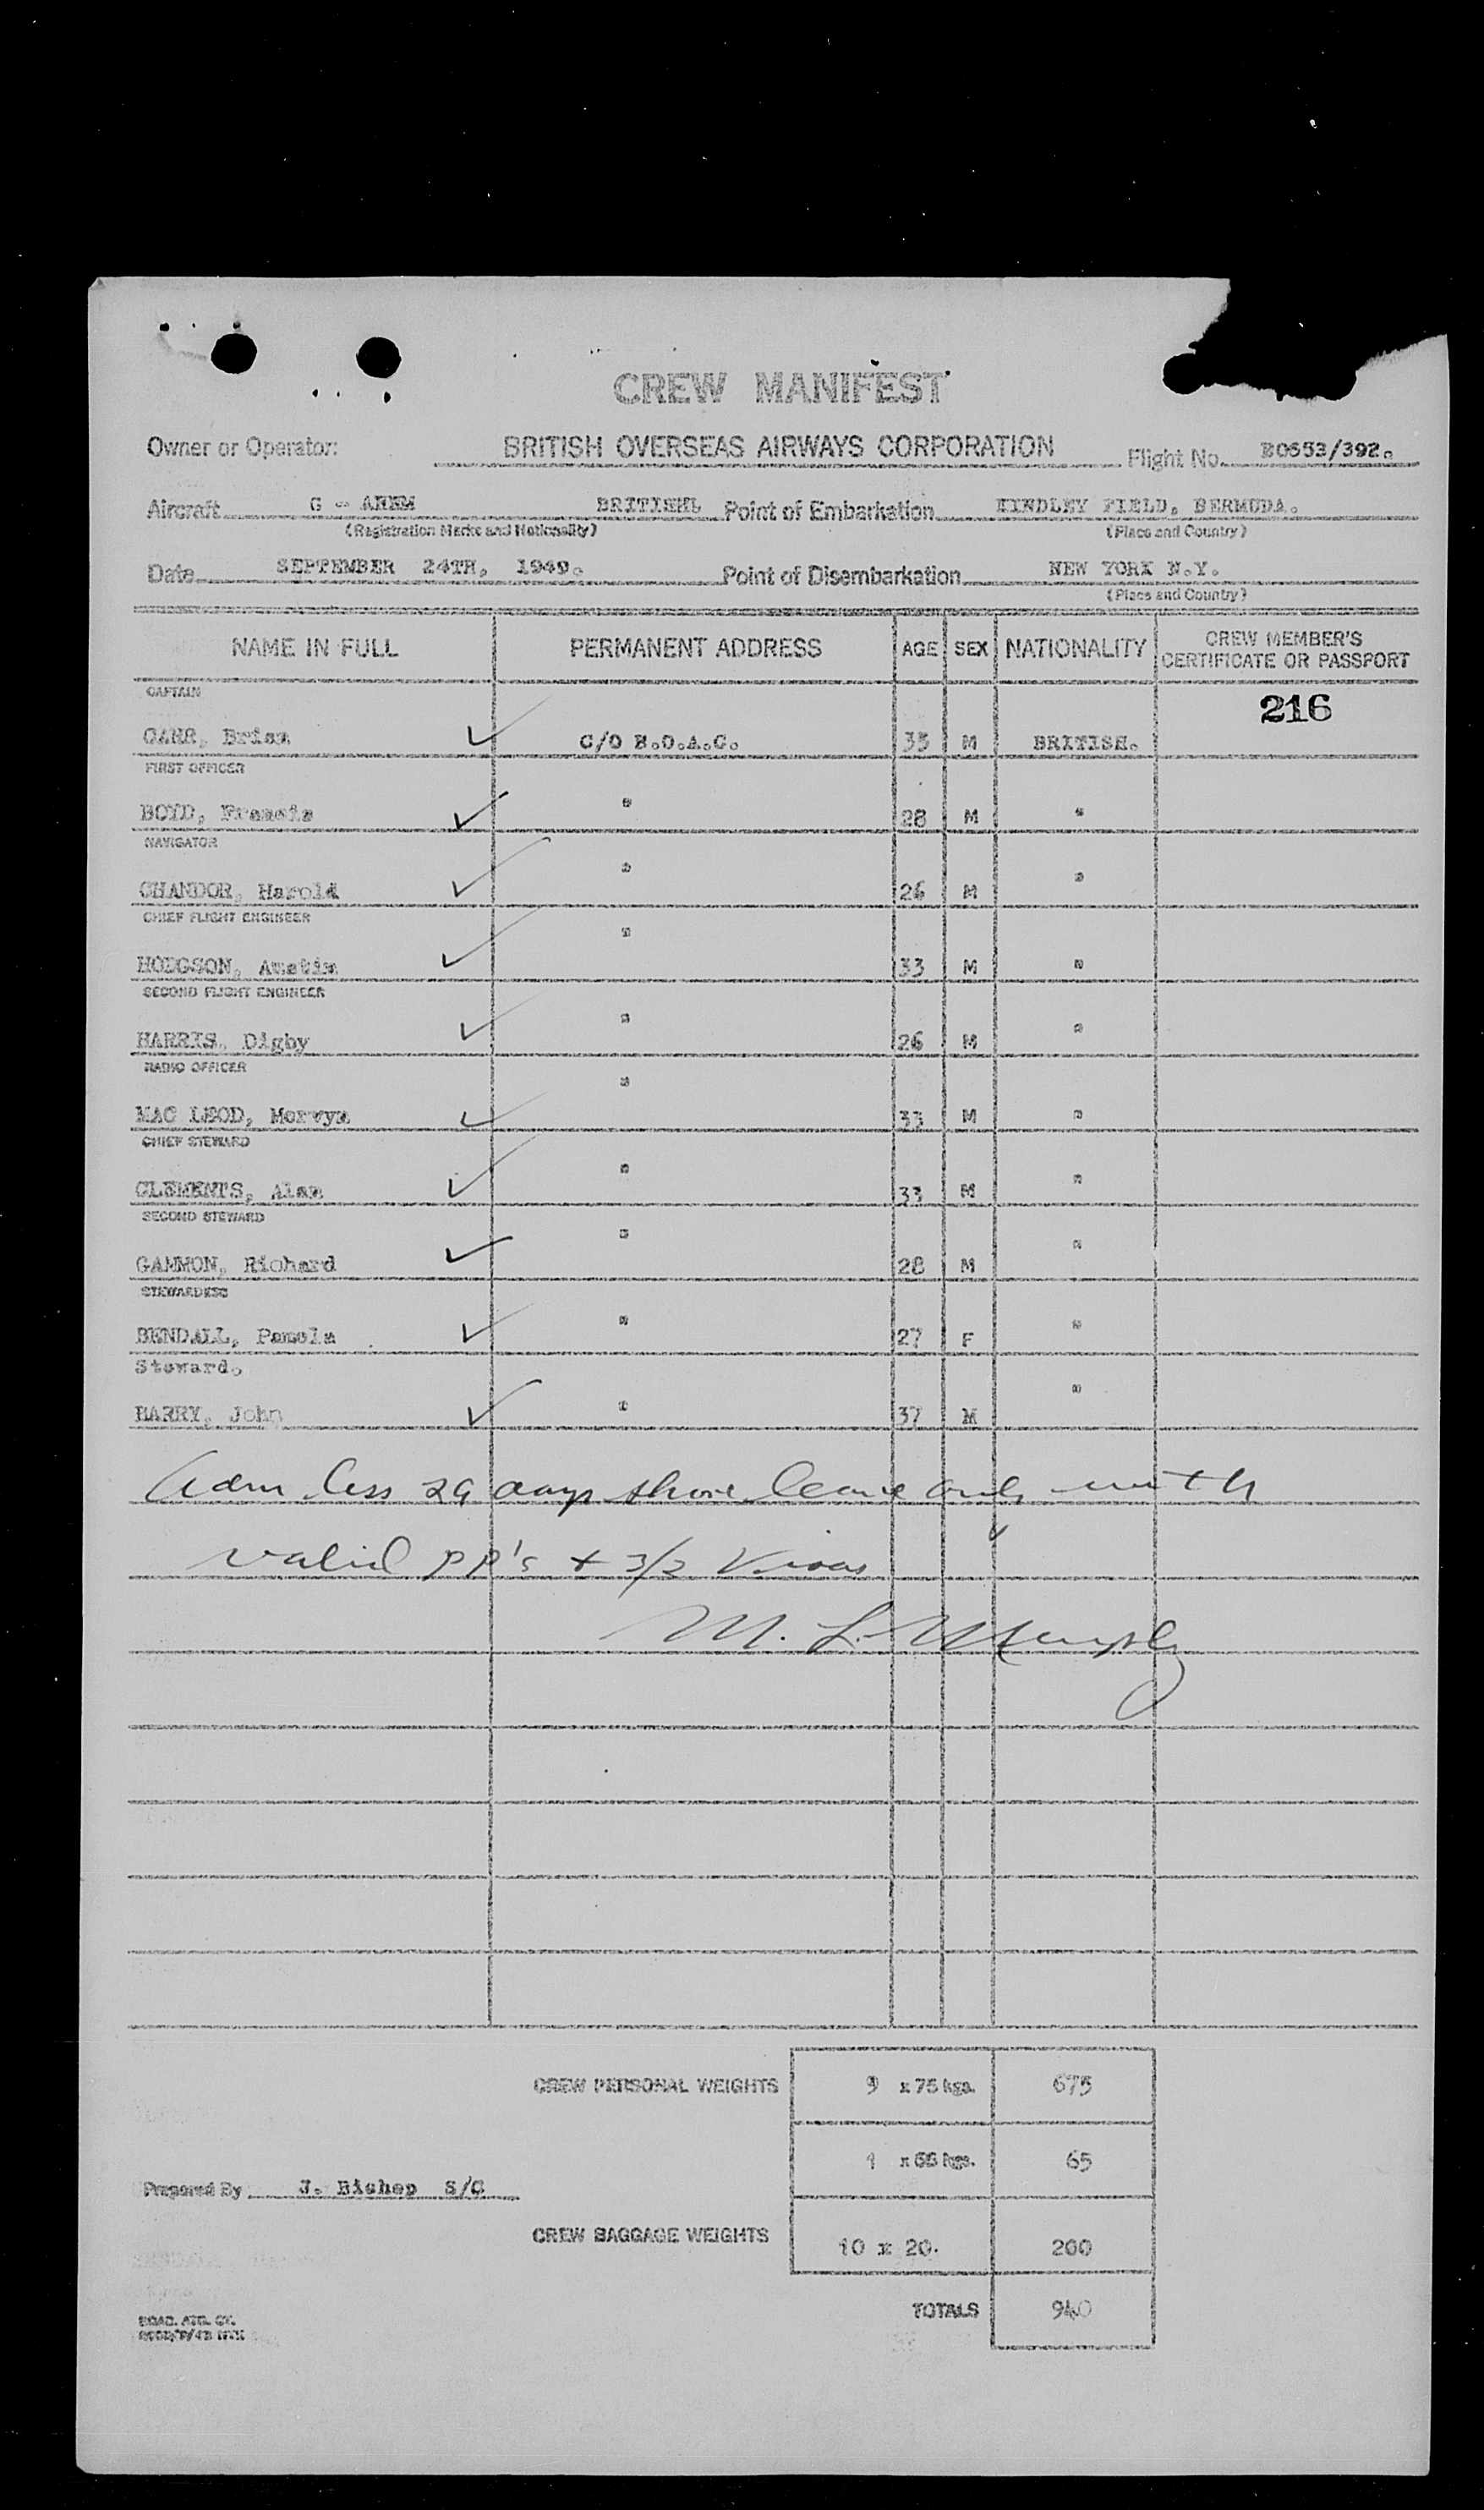 CREW MANIFEST
Owner or Operator: BRITISH OVERSEAS AIRWAYS CORPORATION Flight No. BO653/392.
Aircraft G - AHEM BRITISH Point of Embarkation KINDLEY FIELD, BERMUDA.
(Registration Marks and Nationality) (Place and Country)
Date SEPTEMBER 24TH, 1949. Point of Disembarkation NEW YORK N.Y.
(Place and Country)
NAME IN FULL PERMANENT ADDRESS AGE SEX NATIONALITY CREW MEMBER'S CERTIFICATE OR PASSPORT
CAPTAIN
216
CARR, Brian C/O B.O.A.C. 33 M BRITISH.
FIRST OFFICER
BOYD, Francis " 28 M "
NAVIGATOR
CHANDOR, Harold " 26 M "
CHIEF FLIGHT ENGINEER
HODGSON, Austin " 33 M "
SECOND FLIGHT ENGINEER
HARRIS, Digby " 26 M "
RADIO OFFICER
MAC LEOD, Mervyn " 33 M "
CHIEF STEWARD
CLEMENTS, Alan " 33 M "
SECOND STEWARD
GAMMON, Richard " 28 M "
STEWARDESS
BENDALL, Pamela " 27 F "
Steward.
BARRY, John " 37 M "
Adm less 29 days shore leave only with
valid PP's + 3/2 Visas
M. L. Murphy
CREW PERSONAL WEIGHTS 9 x 75 kgs. 675
1 x 65 kgs. 65
Prepared By J. Bishop S/C
CREW BAGGAGE WEIGHTS 10 x 20. 200
TOTALS 940